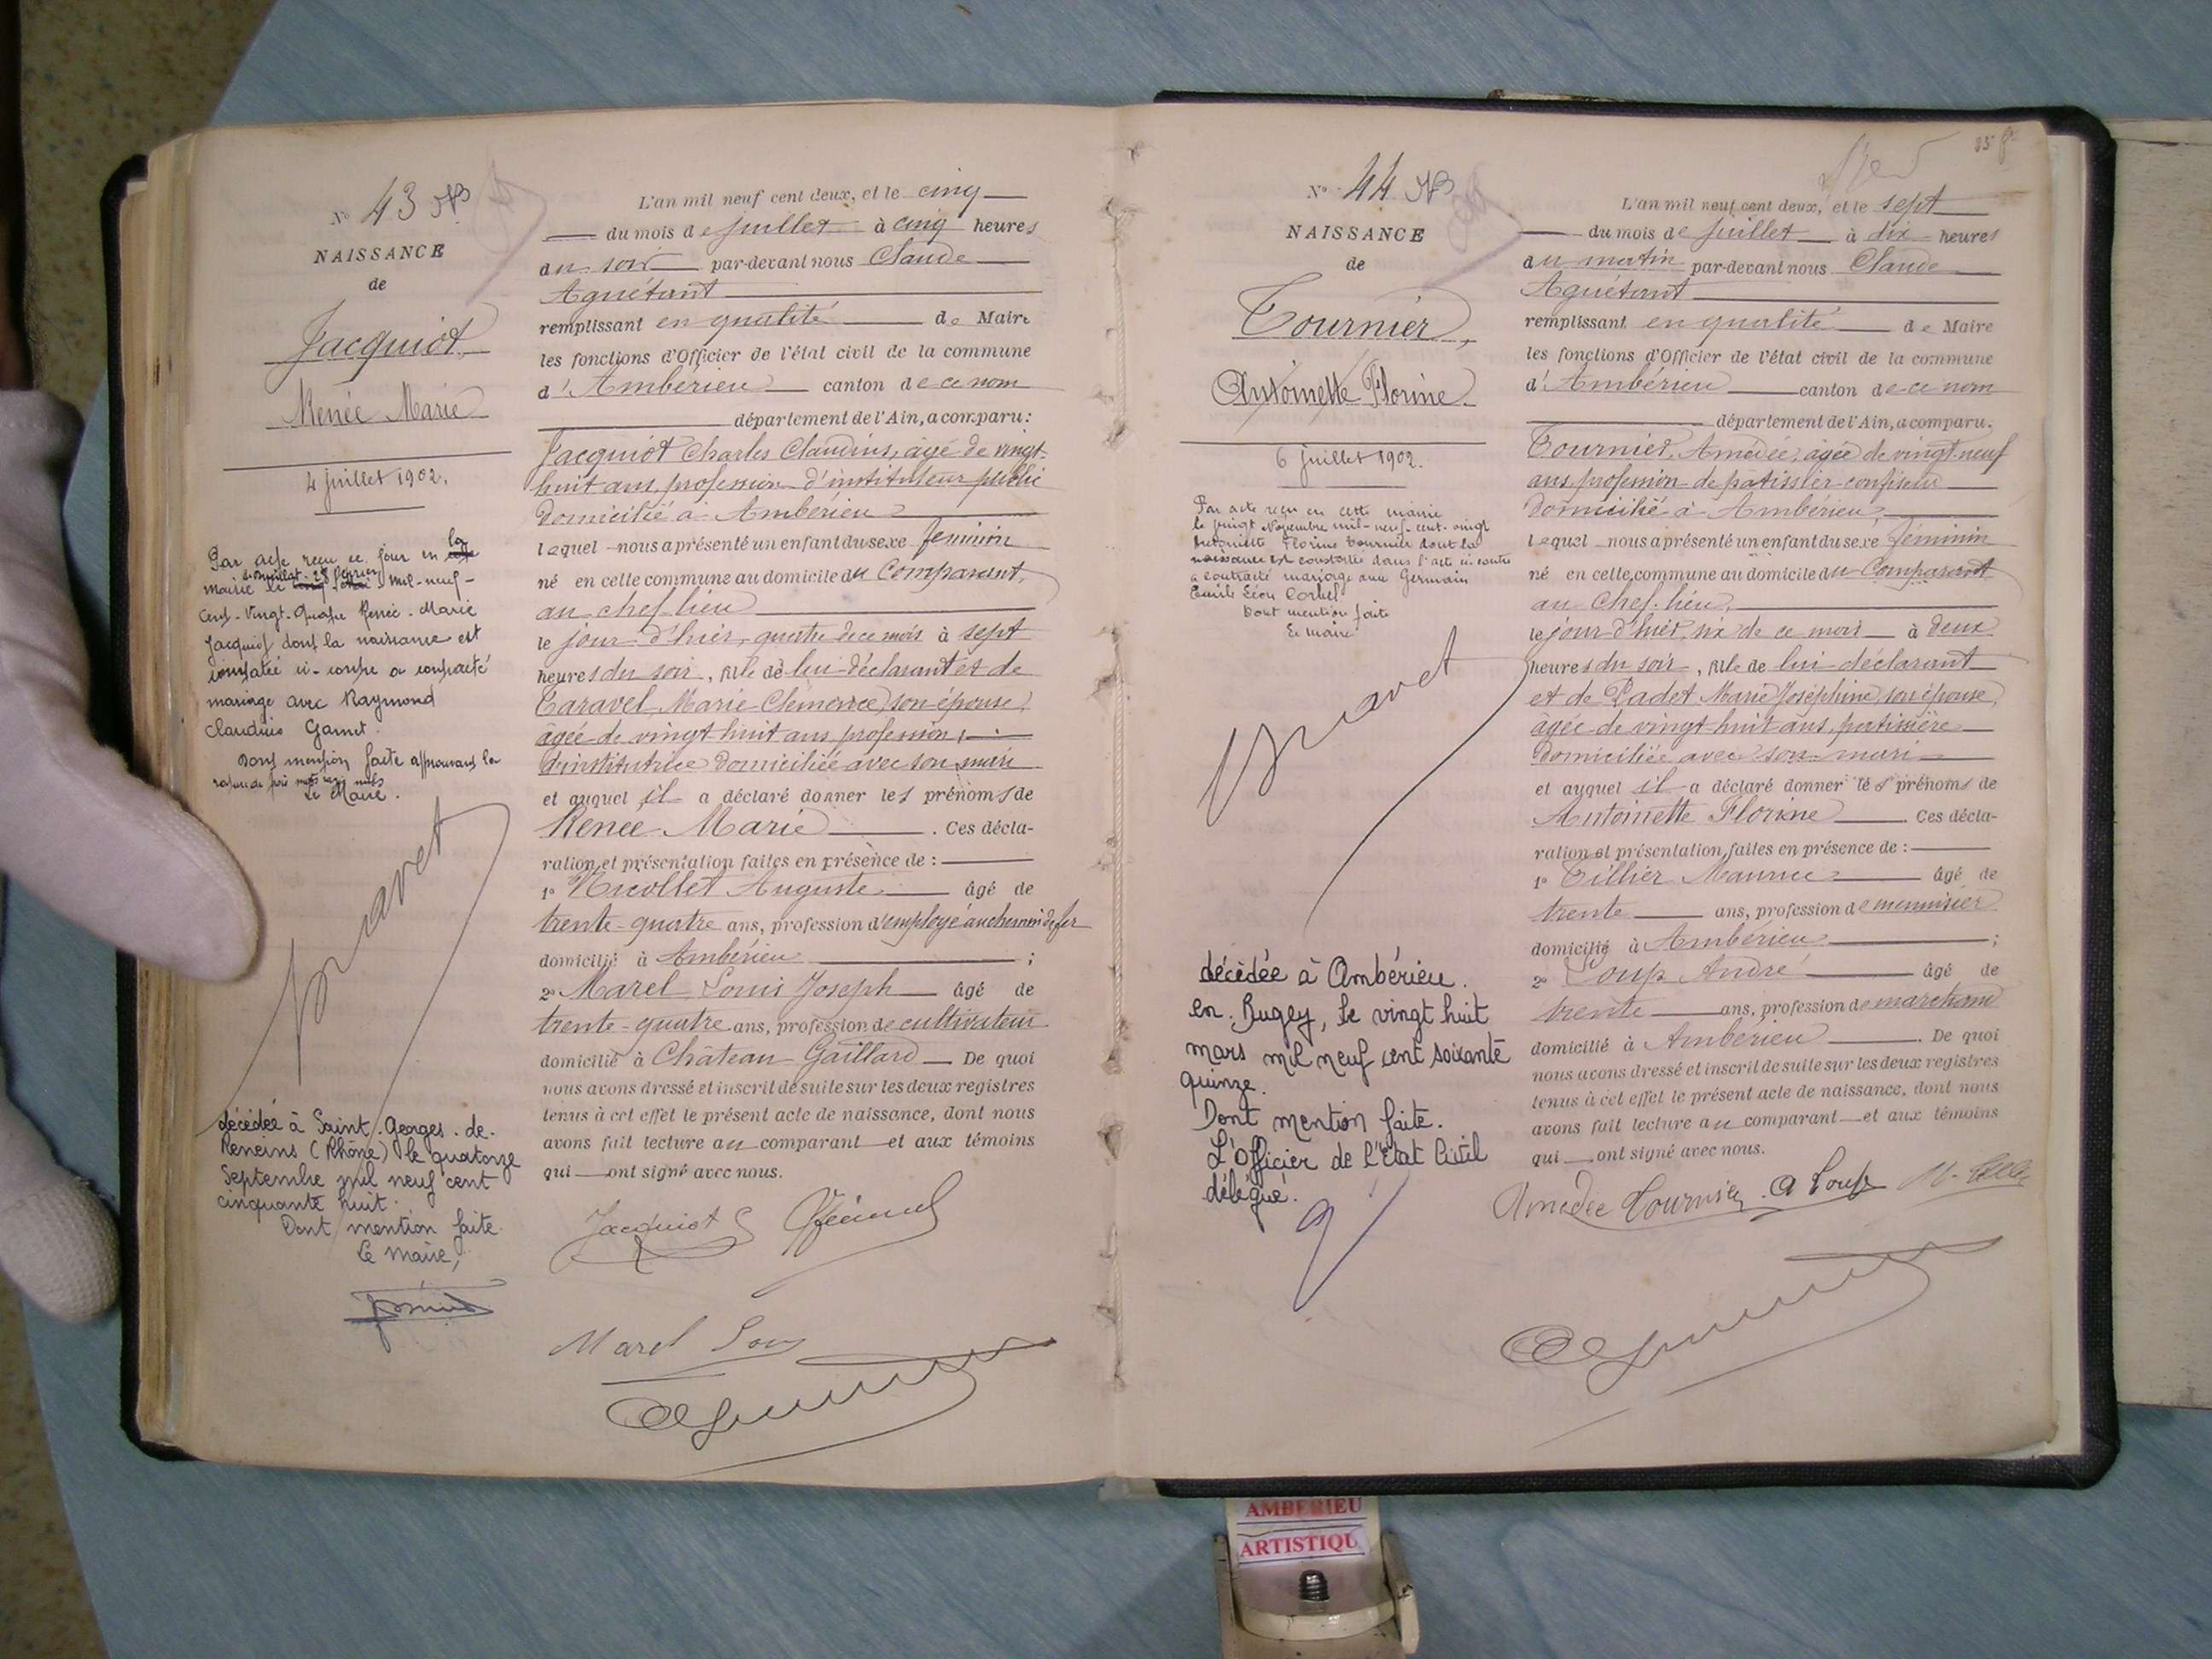 N° 43
NAISSANCE
de
Jacquiot
Renée Marie
4 juillet 1902.
Par acte reçu ce jour en la
mairie le 28 février mil-neuf-
cent-vingt-quatre Renée-Marie
Jacquiot dont la naissance est
constatée ci-contre a contracté
mariage avec Raymond
Claudius Garnet.
Dont mention faite approuvant la
rature de mots rayés nuls
Le Maire.
décédée à Saint-Georges-de-
Reneins (Rhône) le quatorze
Septembre mil neuf cent
cinquante huit.
Dont mention faite.
Le Maire,
L'an mil neuf cent deux, et le cinq
du mois de juillet à cinq heures
du soir par-devant nous Claude
Aguétant
remplissant en qualité de Maire
les fonctions d'Officier de l'état civil de la commune
d'Ambérieu canton de ce nom
département de l'Ain, a comparu :
Jacquiot Charles Claudius, âgé de vingt-
huit ans, profession d'instituteur public
domicilié à Ambérieu
lequel nous a présenté un enfant du sexe féminin
né en cette commune au domicile du Comparant,
au chef-lieu
le jour d'hier, quatre de ce mois à sept
heures du soir, fille de lui déclarant et de
Caravel, Marie Clémence, son épouse,
âgée de vingt huit ans, profession
d'institutrice domiciliée avec son mari
et auquel il a déclaré donner les prénoms de
Renée Marie. Ces décla-
ration et présentation faites en présence de :
1° Nicollet Auguste âgé de
trente-quatre ans, profession d'employé au chemin de fer
domicilié à Ambérieu ;
2° Marel Louis Joseph âgé de
trente-quatre ans, profession de cultivateur
domicilié à Château-Gaillard De quoi
nous avons dressé et inscrit de suite sur les deux registres
tenus à cet effet le présent acte de naissance, dont nous
avons fait lecture au comparant et aux témoins
qui ont signé avec nous.
Jacquiot C
Marel Louis
N° 44
NAISSANCE
de
Tournier,
Antoinette Florine.
6 juillet 1902.
Par acte reçu en cette mairie
le vingt Novembre mil-neuf-cent-vingt
Antoinette Florine Tournier dont la
naissance est constatée dans l'acte ci-contre
a contracté mariage avec Germain
Emile Léon
Dont mention faite
Le maire
décédée à Ambérieu-
en-Bugey, le vingt huit
mars mil neuf cent soixante
quinze.
Dont mention faite.
L'Officier de l'Etat Civil
délégué.
L'an mil neuf cent deux, et le sept
du mois de juillet à dix heures
du matin par-devant nous Claude
Aguétant
remplissant en qualité de Maire
les fonctions d'Officier de l'état civil de la commune
d'Ambérieu canton de ce nom
département de l'Ain, a comparu.
Tournier, Amédée, âgé de vingt-neuf
ans, profession de pâtissier-confiseur
domicilié à Ambérieu,
lequel nous a présenté un enfant du sexe féminin
né en cette commune au domicile du Comparant
au Chef-lieu,
le jour d'hier, six de ce mois à deux
heures du soir, fille de lui déclarant
et de Padet Marie Joséphine, son épouse,
âgée de vingt-huit ans, pâtissière
domiciliée avec son mari
et auquel il a déclaré donner les prénoms de
Antoinette Florine Ces décla-
ration et présentation faites en présence de :
1° Tillier Maurice âgé de
trente ans, profession de menuisier
domicilié à Ambérieu ;
2° Loup André âgé de
trente ans, profession de marchand
domicilié à Ambérieu. De quoi
nous avons dressé et inscrit de suite sur les deux registres
tenus à cet effet le présent acte de naissance, dont nous
avons fait lecture au comparant et aux témoins
qui ont signé avec nous.
Amédée Tournier A Loup
AMBERIEU
ARTISTIQU